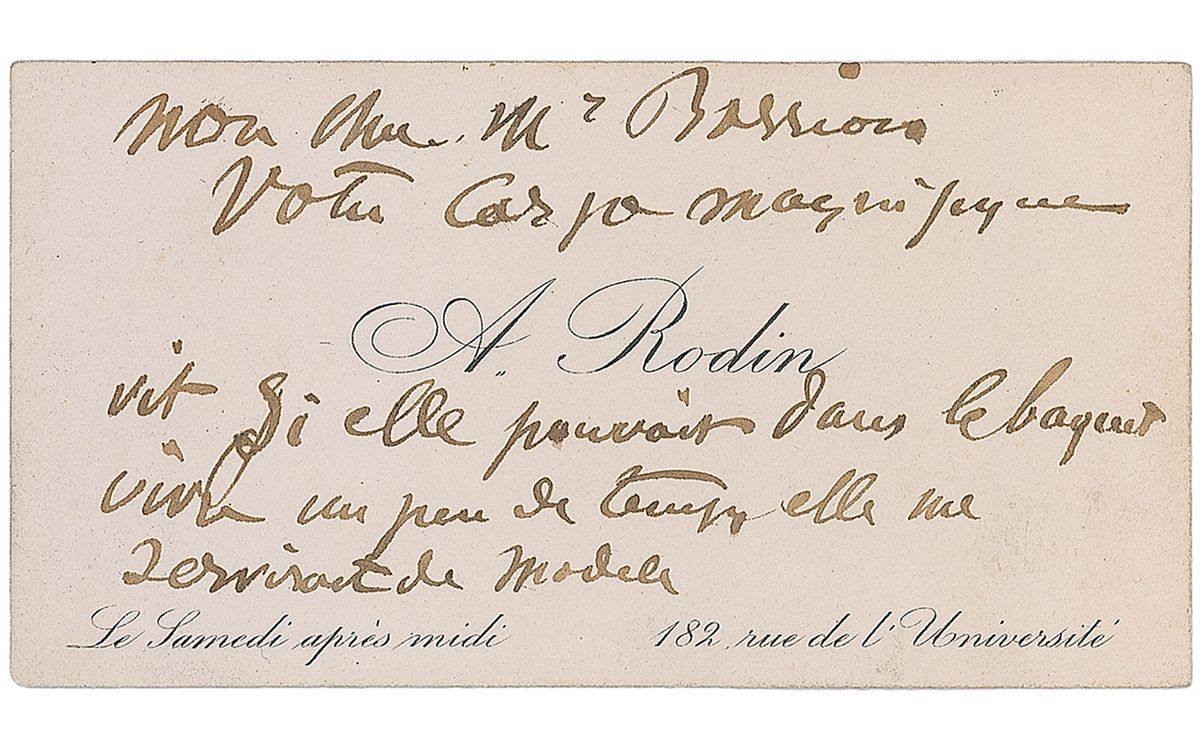 mon cher Mr
Votre Carpe magnifique
A. Rodin
vit Si elle pouvait dans le baquet
vivre un peu de temps, elle me
servirait de modele
Le Samedi après midi 182, rue de l'Université